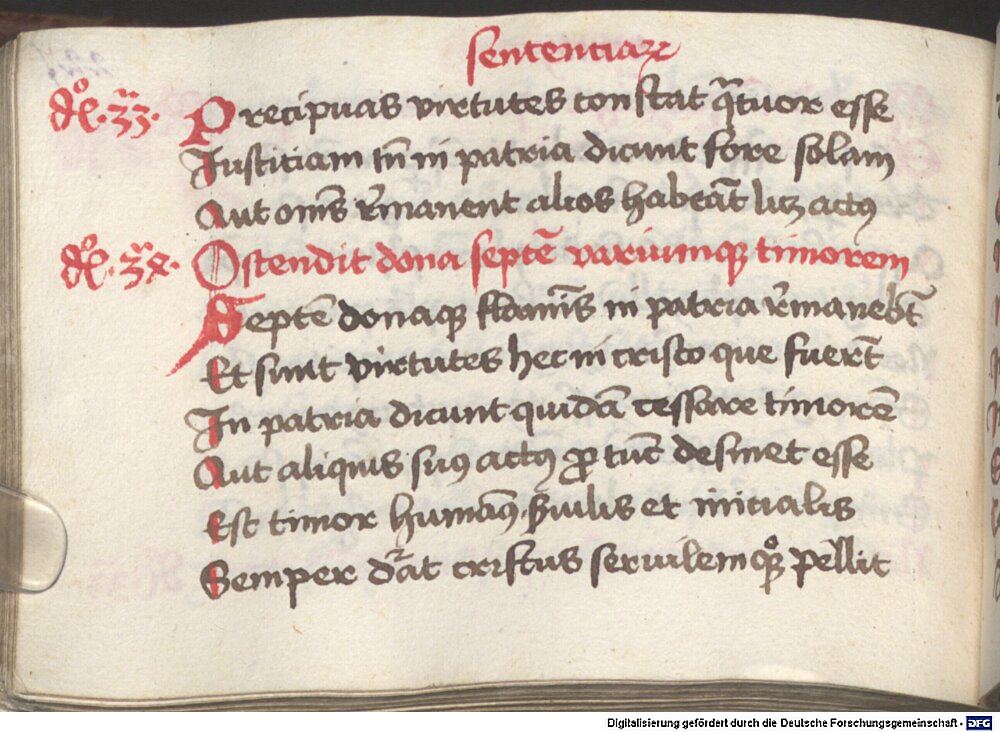 sententiaꝝ
dꝰ. 33.
Precipuas virtutes constat qͣtuor esse
Iusticiam tn̄ in patria dicunt fore solam
Aut om̄s r̄manent alios habeāt lꝫ actꝰ
34.
Ostendit dona septē variumqꝫ timorem
Septē donaqꝫ flamīs in patria r̄manebt̄
Et sunt virtutes hec in cristo que fuert̄
In patria dicunt quidā cessare timorē
Aut aliquis suꝰ actꝰ ꝓ tūc desinet esse
Est timor humāꝰ s̄uilis et inicialis
Semper cristus seruilemqꝫ pellit
Digitalisierung gefördert durch die Deutsche Forschungsgemeinschaft - DFG